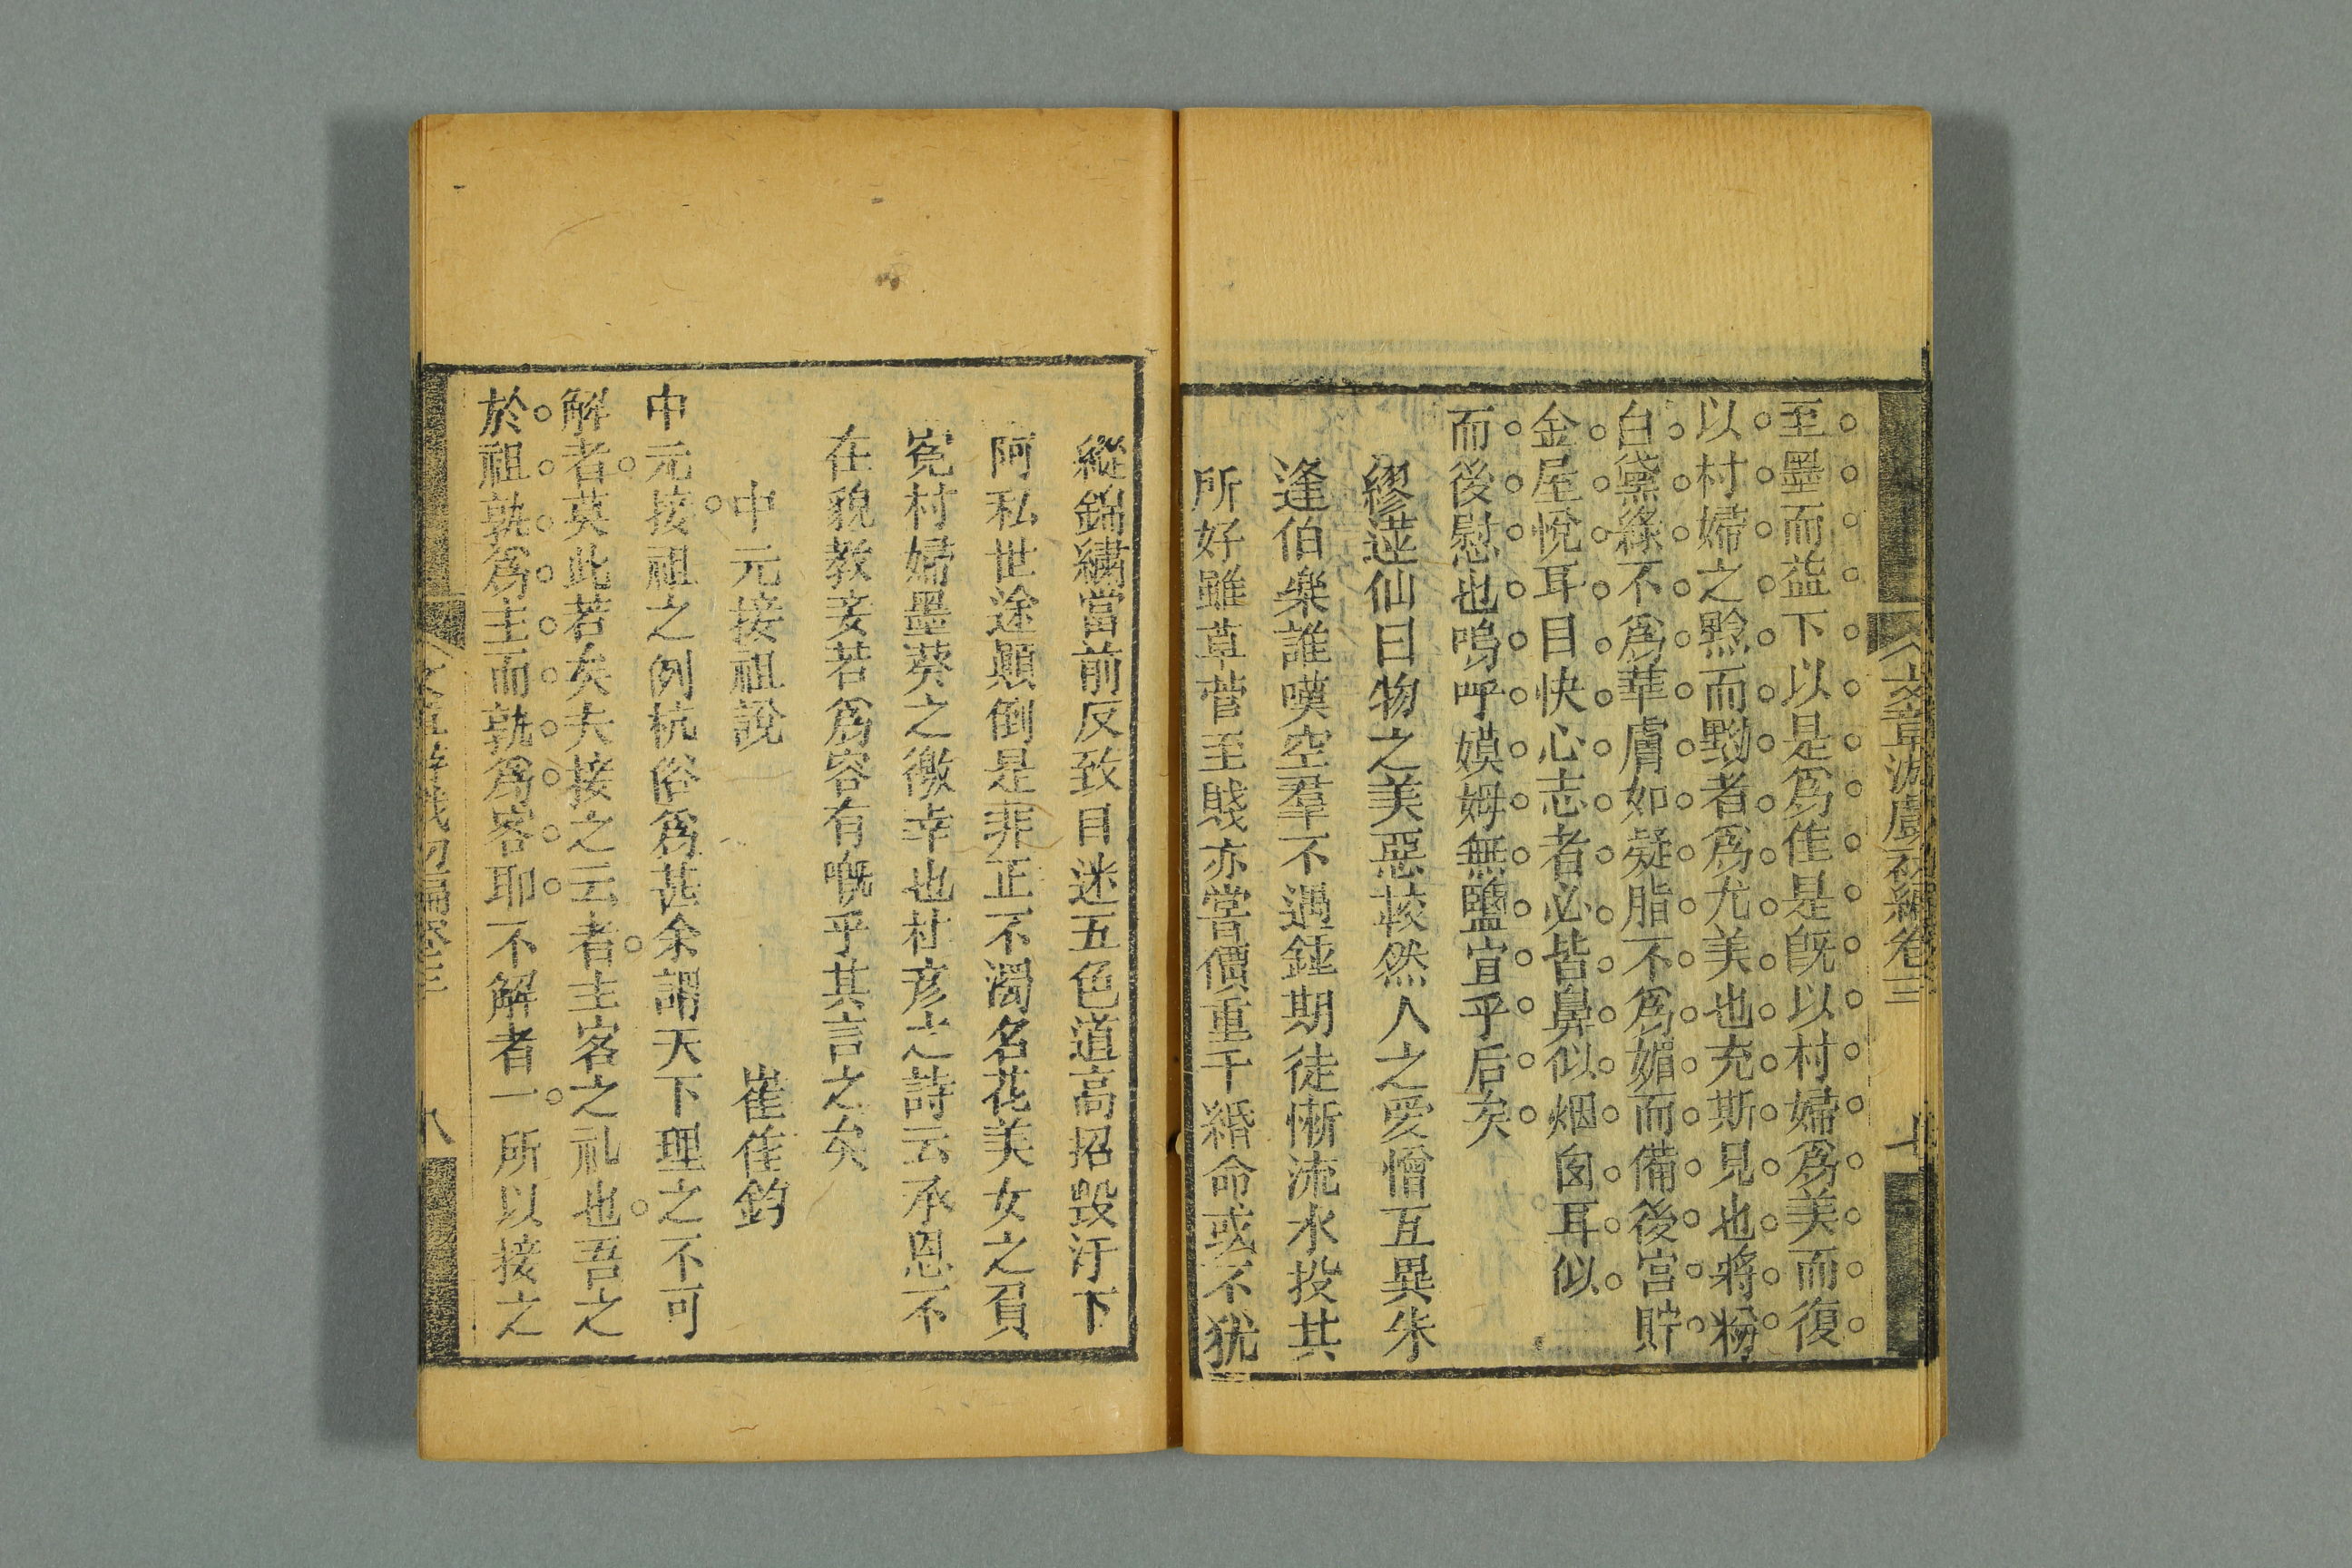 文章游戲初編卷三
七
至墨而益下以是爲隹是旣以村婦爲美而復
以村婦之黔而黝者爲尤美也充斯見也將粉
白黛綠不爲華膚如凝脂不爲媚而備後宮貯
金屋悅耳目快心志者必皆鼻似烟囪耳似
而後慰也嗚呼嫫姆無鹽宜乎后矣
繆蓮仙曰物之美惡較然人之愛憎互異朱
逢伯樂誰嘆空羣不遇鍾期徒慚流水投其
所好雖草菅至賤亦嘗價重千緡命或不猶
縱錦繡當前反致目迷五色道高招毀汙下
阿私世途顚倒是非正不濁名花美女之負
寃村婦墨葵之徼幸也杜彥之詩云承恩不
在貌教妾若爲容有嘅乎其言之矣
中元接祖說
崔隹鈞
中元接祖之例杭俗爲甚余謂天下理之不可
解者莫此若矣夫接之云者主客之礼也吾之
於祖孰爲主而孰爲客耶不解者一所以接之
初編卷三
八